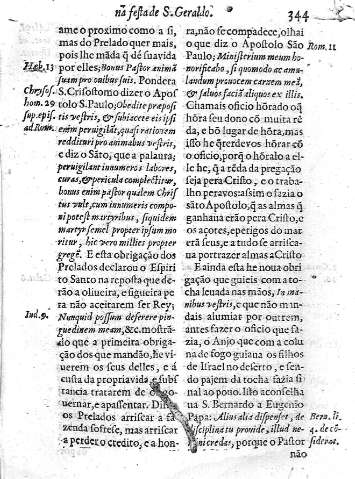 nã festa de S. Geraldo.
344
ame o proximo como a si,
mas do Prelado quer mais,
pois lhe mãda q̃ dé sua vida
por elles; Bonus Pastor animã
suam pro ouibus suis. Pondera
S. Crisostomo dizer o Apos
tolo S. Paulo; Obedite præposi
tis vestris, & subiacete eis ipsi
enim peruigilãt, quasi rationem
reddituri pro animabus vestris,
e diz o Sãto, que a palaura;
peruigilant innumeros labores,
curas, & pericula complectitur,
bonus enim pastor qualem Chris
tus vult, cum innumeris compo
ni potest martyribus, siquidem
martyr semel propter ipsum mo
ritur, hic vero millies propter
gregẽ. E esta obrigação dos
Prelados declarou o Espiri
to Santo na reposta que de-
rão a oliueira, e figueira pe
ra não aceitarem ser Rey;
Nunquid possum deserere pin-
guedinem meam, &c. mostrã-
do que a primeira obriga-
ção dos que mandão, he vi-
uerem os seus delles, e á
custa da propria vida, e subs
tancia tratarem de os go-
uernar, e apassentar.
os Prelados arriscar a fa-
zenda sofrese, mas arriscar
a perder o credito, e a hon-
Hæb. 13
Chrysos.
hom. 29
sup. epist.
ad Rom.
Iud. 9.
ra, não se compadece, olhai
o que diz o Apostolo São
Paulo; Ministerium meum ho-
norificabo, si quomodo ad æmu-
landum prouocem carnem meã,
& saluos faciã aliquos ex illis.
Chamais oficio hõrado oq̃
hõra seu dono cõ muita rẽ
da, e bõ lugar de hõra, mas
isso he q̃rerdevos hõrar cõ
o oficio, porq̃ o hõralo a el-
le he, q̃ a rẽda da pregação
seja pera Cristo, e o traba-
lho pera vos assim o fazia o
sãto Apostolo, q̃ as almas q̃
ganhaua erão pera Cristo, e
os açoutes, e perigos do mar
erã seus, e a tudo se arrisca-
ua por trazer almas a Cristo
E ainda esta he noua obri
gação que guieis com a to-
cha leuada nas mãos, In ma-
nibus vestris, e que não man-
dais alumiar por outrem,
antes fazer o oficio que fa-
zia, o Anjo que com a colu
na de fogo guiaua os filhos
de Israel no deserto, e sen-
do pajem da tocha fazia si
nal ao pouo. Isto aconselha
ua S. Bernardo a Eugenio
Papa: Alius alia dispenset, de
disciplina tu prouide, illud ne-
mini credas, porque o Pastor
não
Rom. 11
Bern. li.
4. de cõ-
siderat.